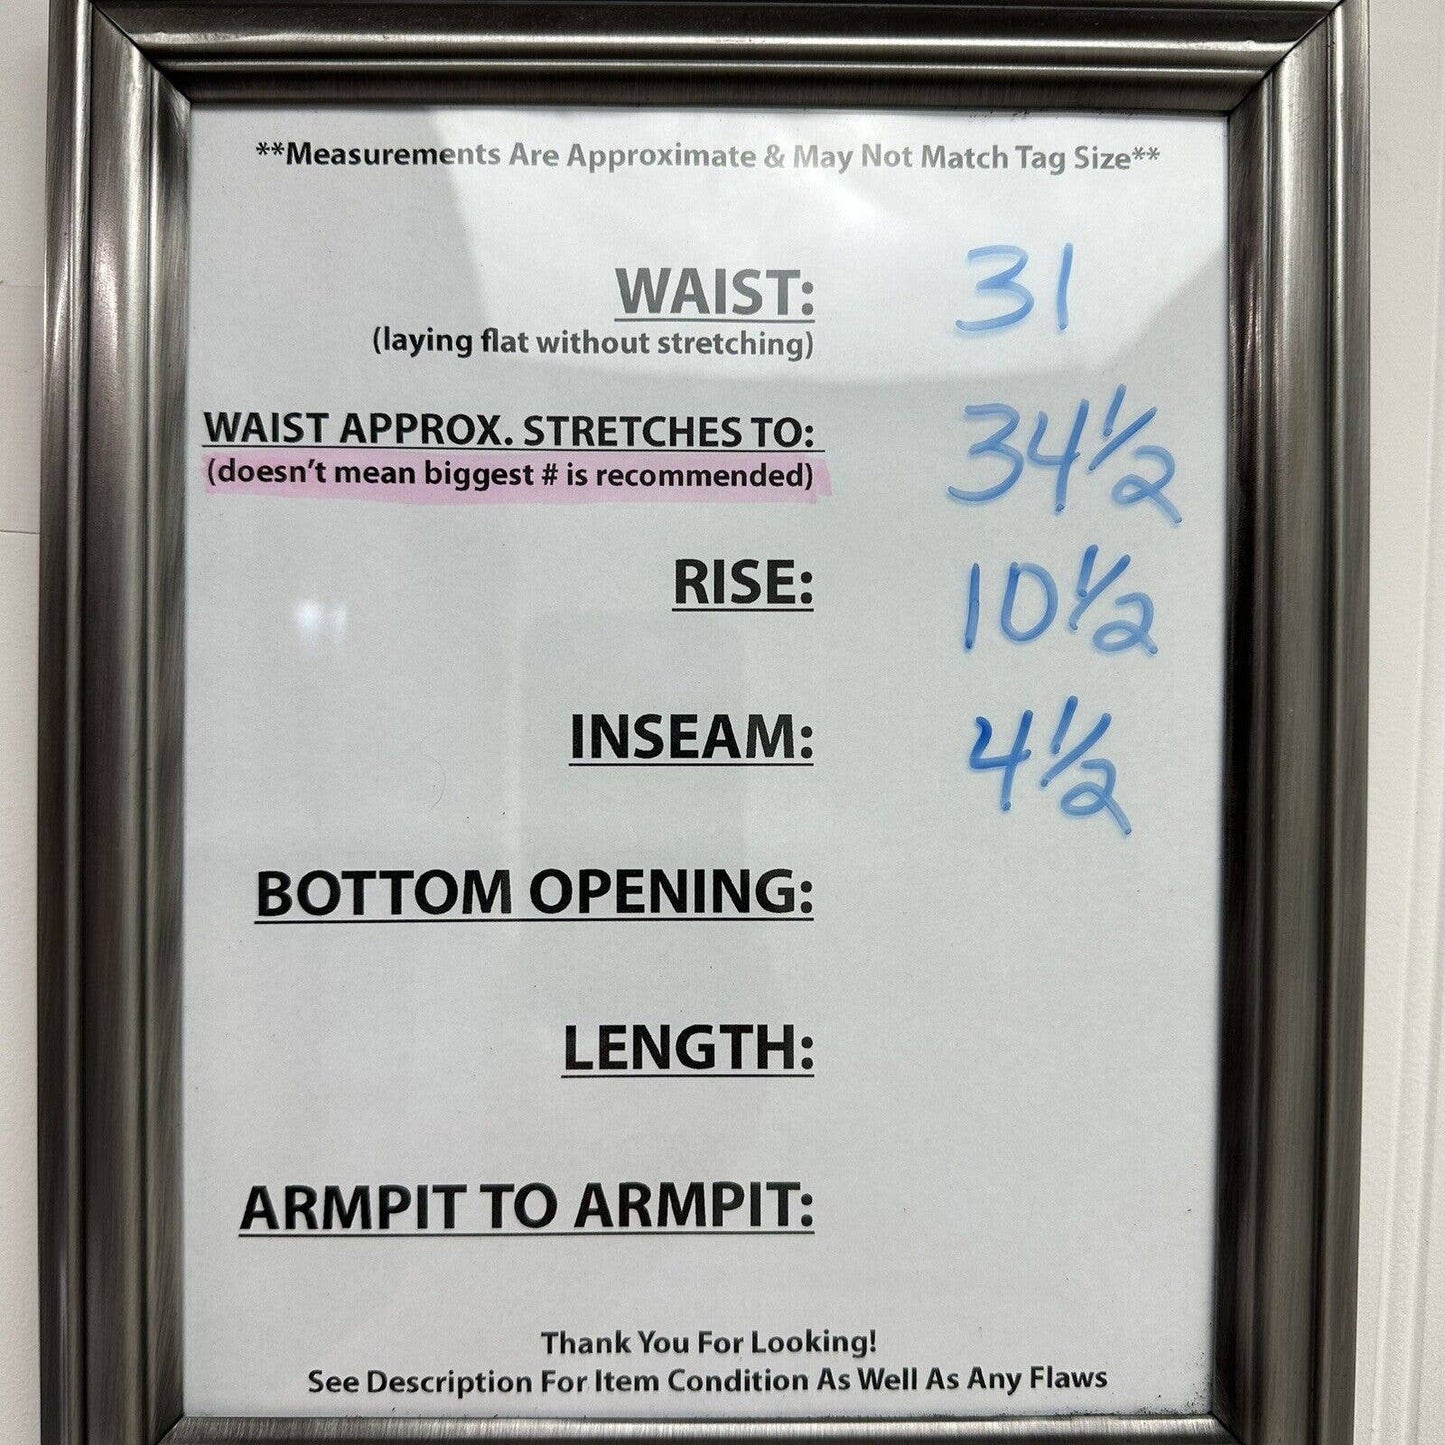 **Measurements Are Approximate & May Not Match Tag Size**
WAIST: 31
(laying flat without stretching)
WAIST APPROX. STRETCHES TO: 34 1/2
(doesn't mean biggest # is recommended)
RISE: 10 1/2
INSEAM: 4 1/2
BOTTOM OPENING:
LENGTH:
ARMPIT TO ARMPIT:
Thank You For Looking!
See Description For Item Condition As Well As Any Flaws